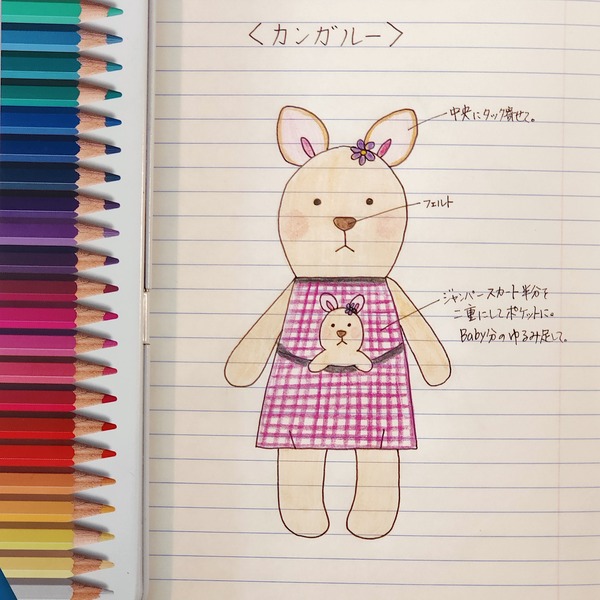 〈カンガルー〉
中央にタック寄せて。
フェルト
ジャンパースカート半分を
二重にしてポケットに。
Baby分のゆるみ足して。